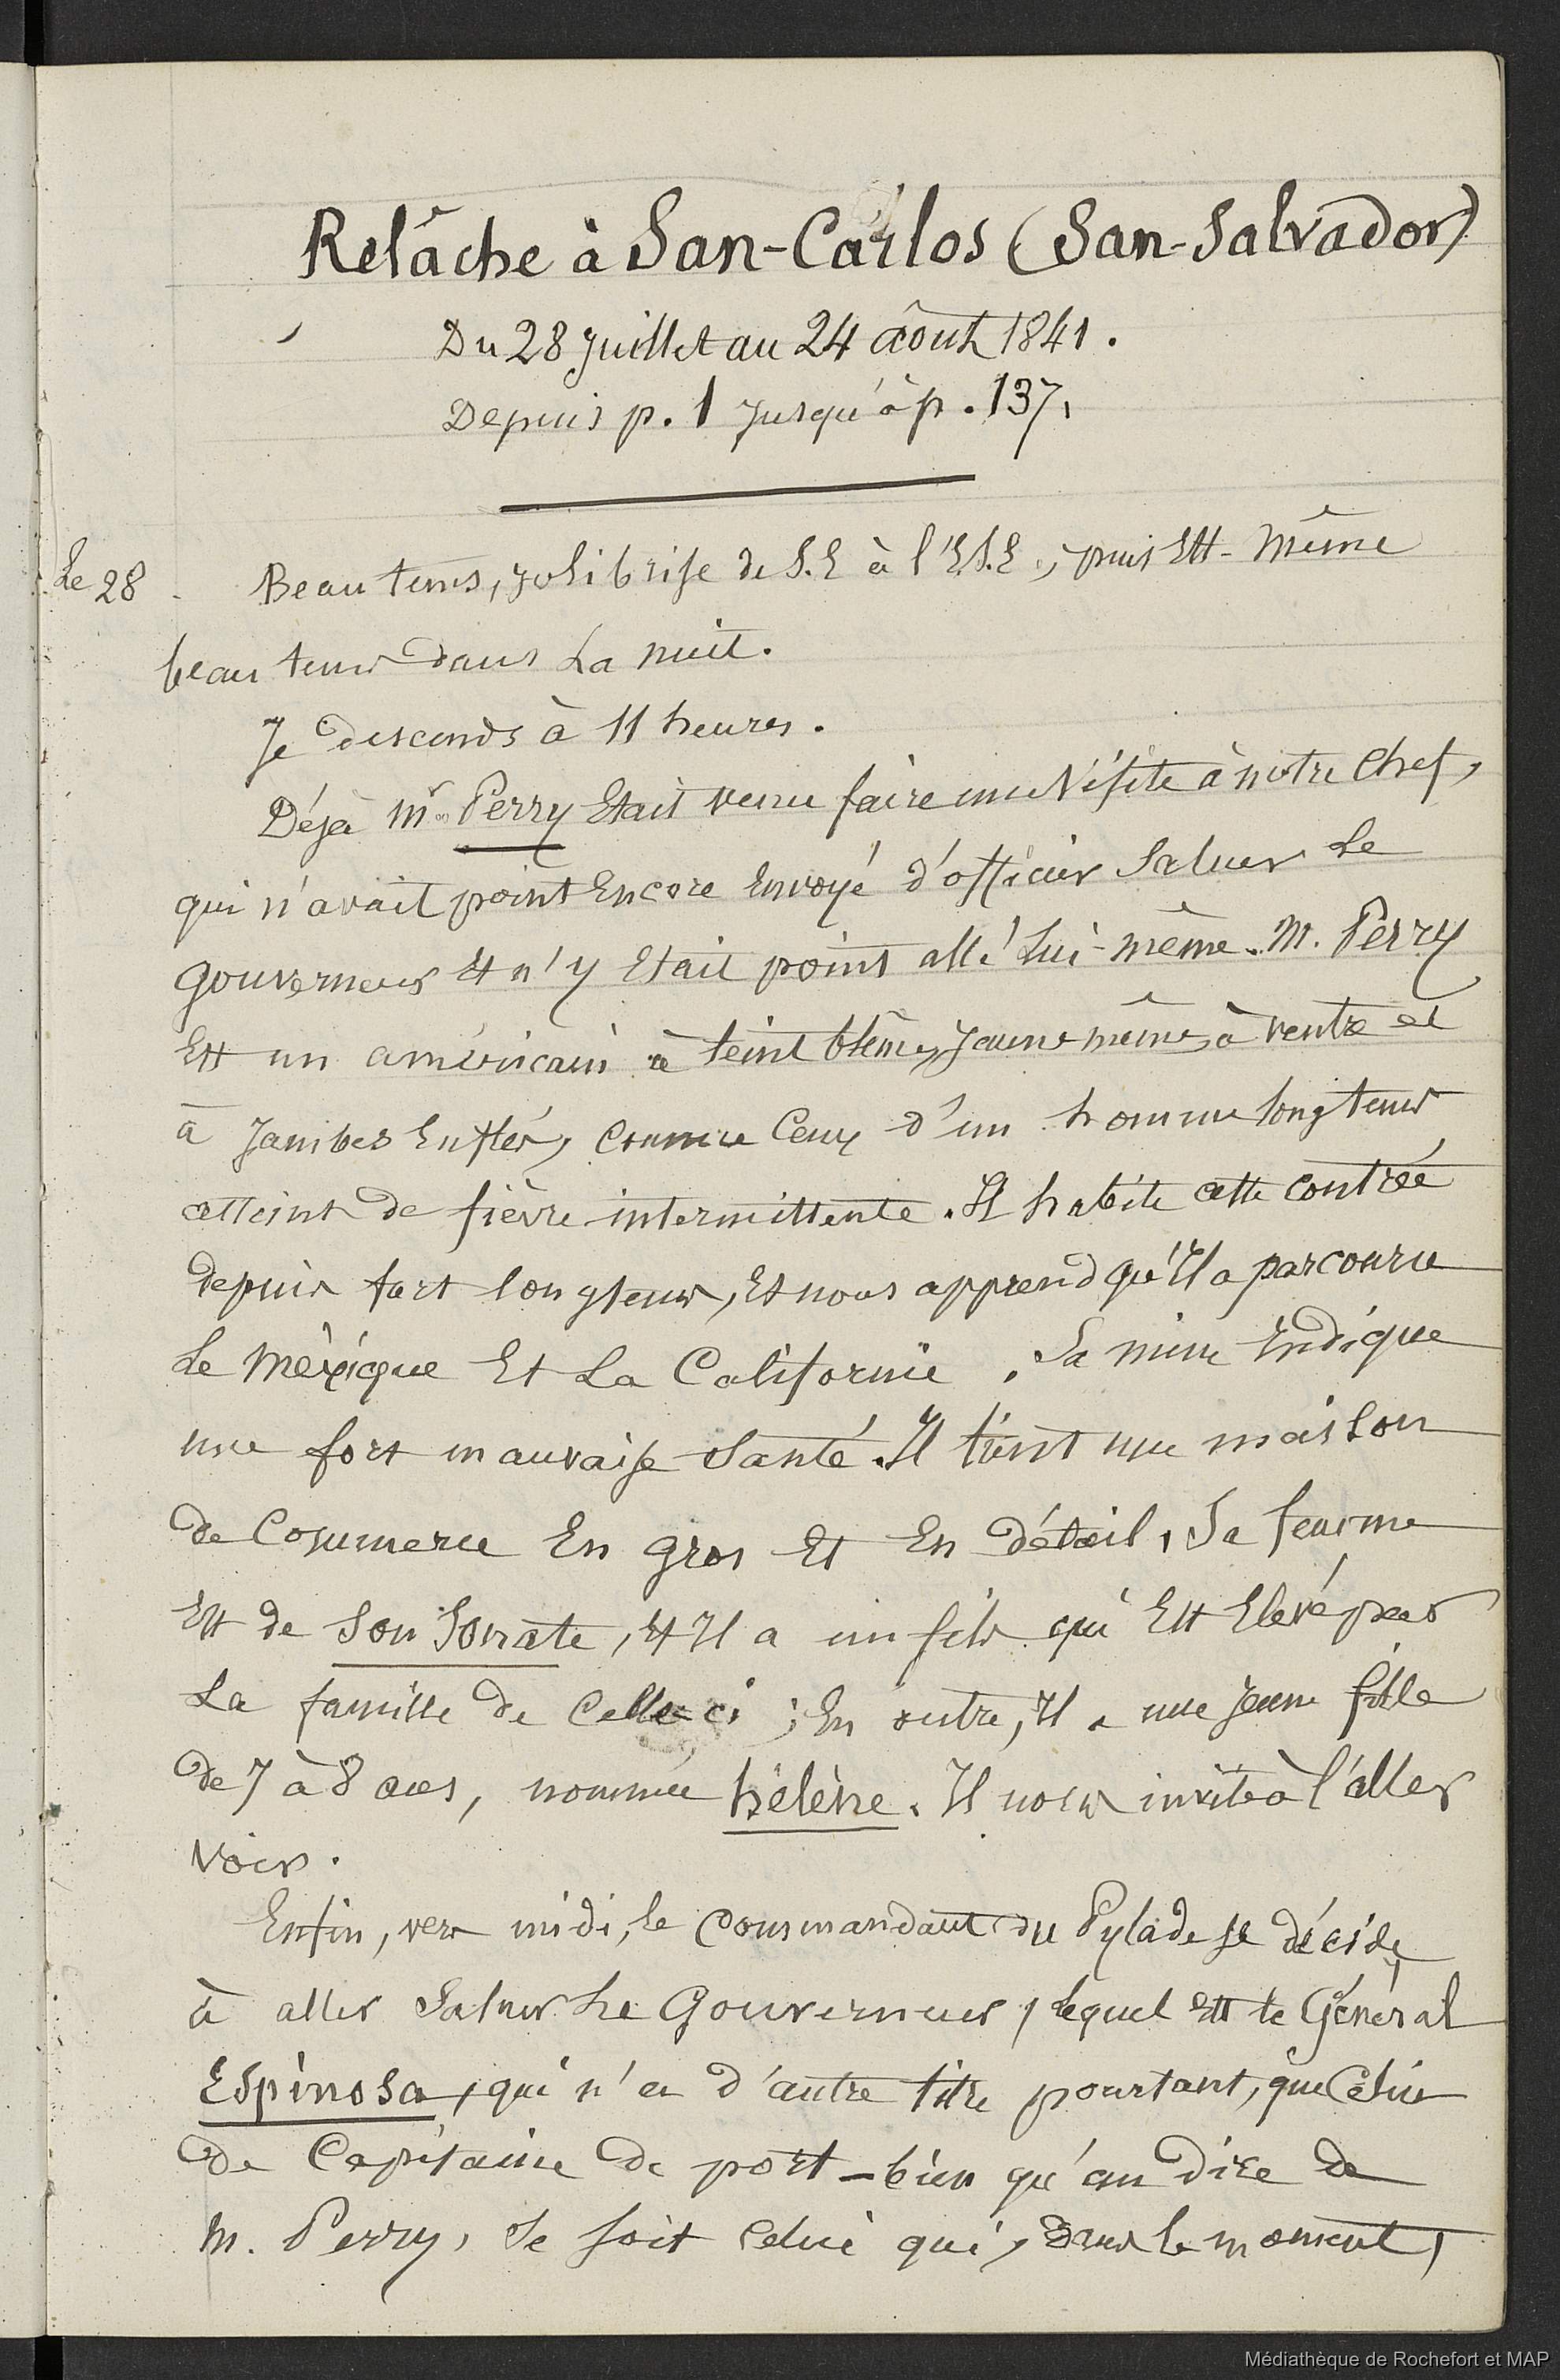 Relâche à San-Carlos (San-Salvador)
Du 28 Juillet au 24 août 1841.
Depuis p. 1 Jusqu'à p. 137.
Le 28. Beau tems, joli brise de S.E à l'E.S.E, puis Est - Même
beau tems dans La nuit.
Je descends à 11 heures.
Déjà Mr. Perry Etait venu faire une Visite à notre Chef,
qui n'avait point Encore Envoyé d'officier Saluer Le
Gouverneur Et n'y Etait point allé Lui-même. M. Perry
Est un américain à teint blême, Jaune même, à ventre et
à Jambes Enflés, comme Ceux d'un homme longtems
atteint de fièvre intermittente. Il habite cette contrée
depuis fort longtems, Et nous apprend qu'Il a parcouru
Le Méxique Et La Californie. Sa mine Indique
une fort mauvaise Santé. Il tient une maison
de Commerce En gros Et En détail. Sa femme
Est de Son Sonate, Et Il a un fils qui Est Elevé par
La famille de Celle-ci ; En outre, Il a une Jeune fille
de 7 à 8 ans, nommée hélène. Il nous invite à l'aller
Voir.
Enfin, vers midi, le Commandant du Pylade se décide
à aller Saluer Le Gouverneur, lequel Est le Général
Espinosa, qui n'a d'autre titre pourtant, que Celui
de Capitaine de port - bien qu'au dire de
M. Perry, Se soit Celui qui, dans le moment,
Médiathèque de Rochefort et MAP